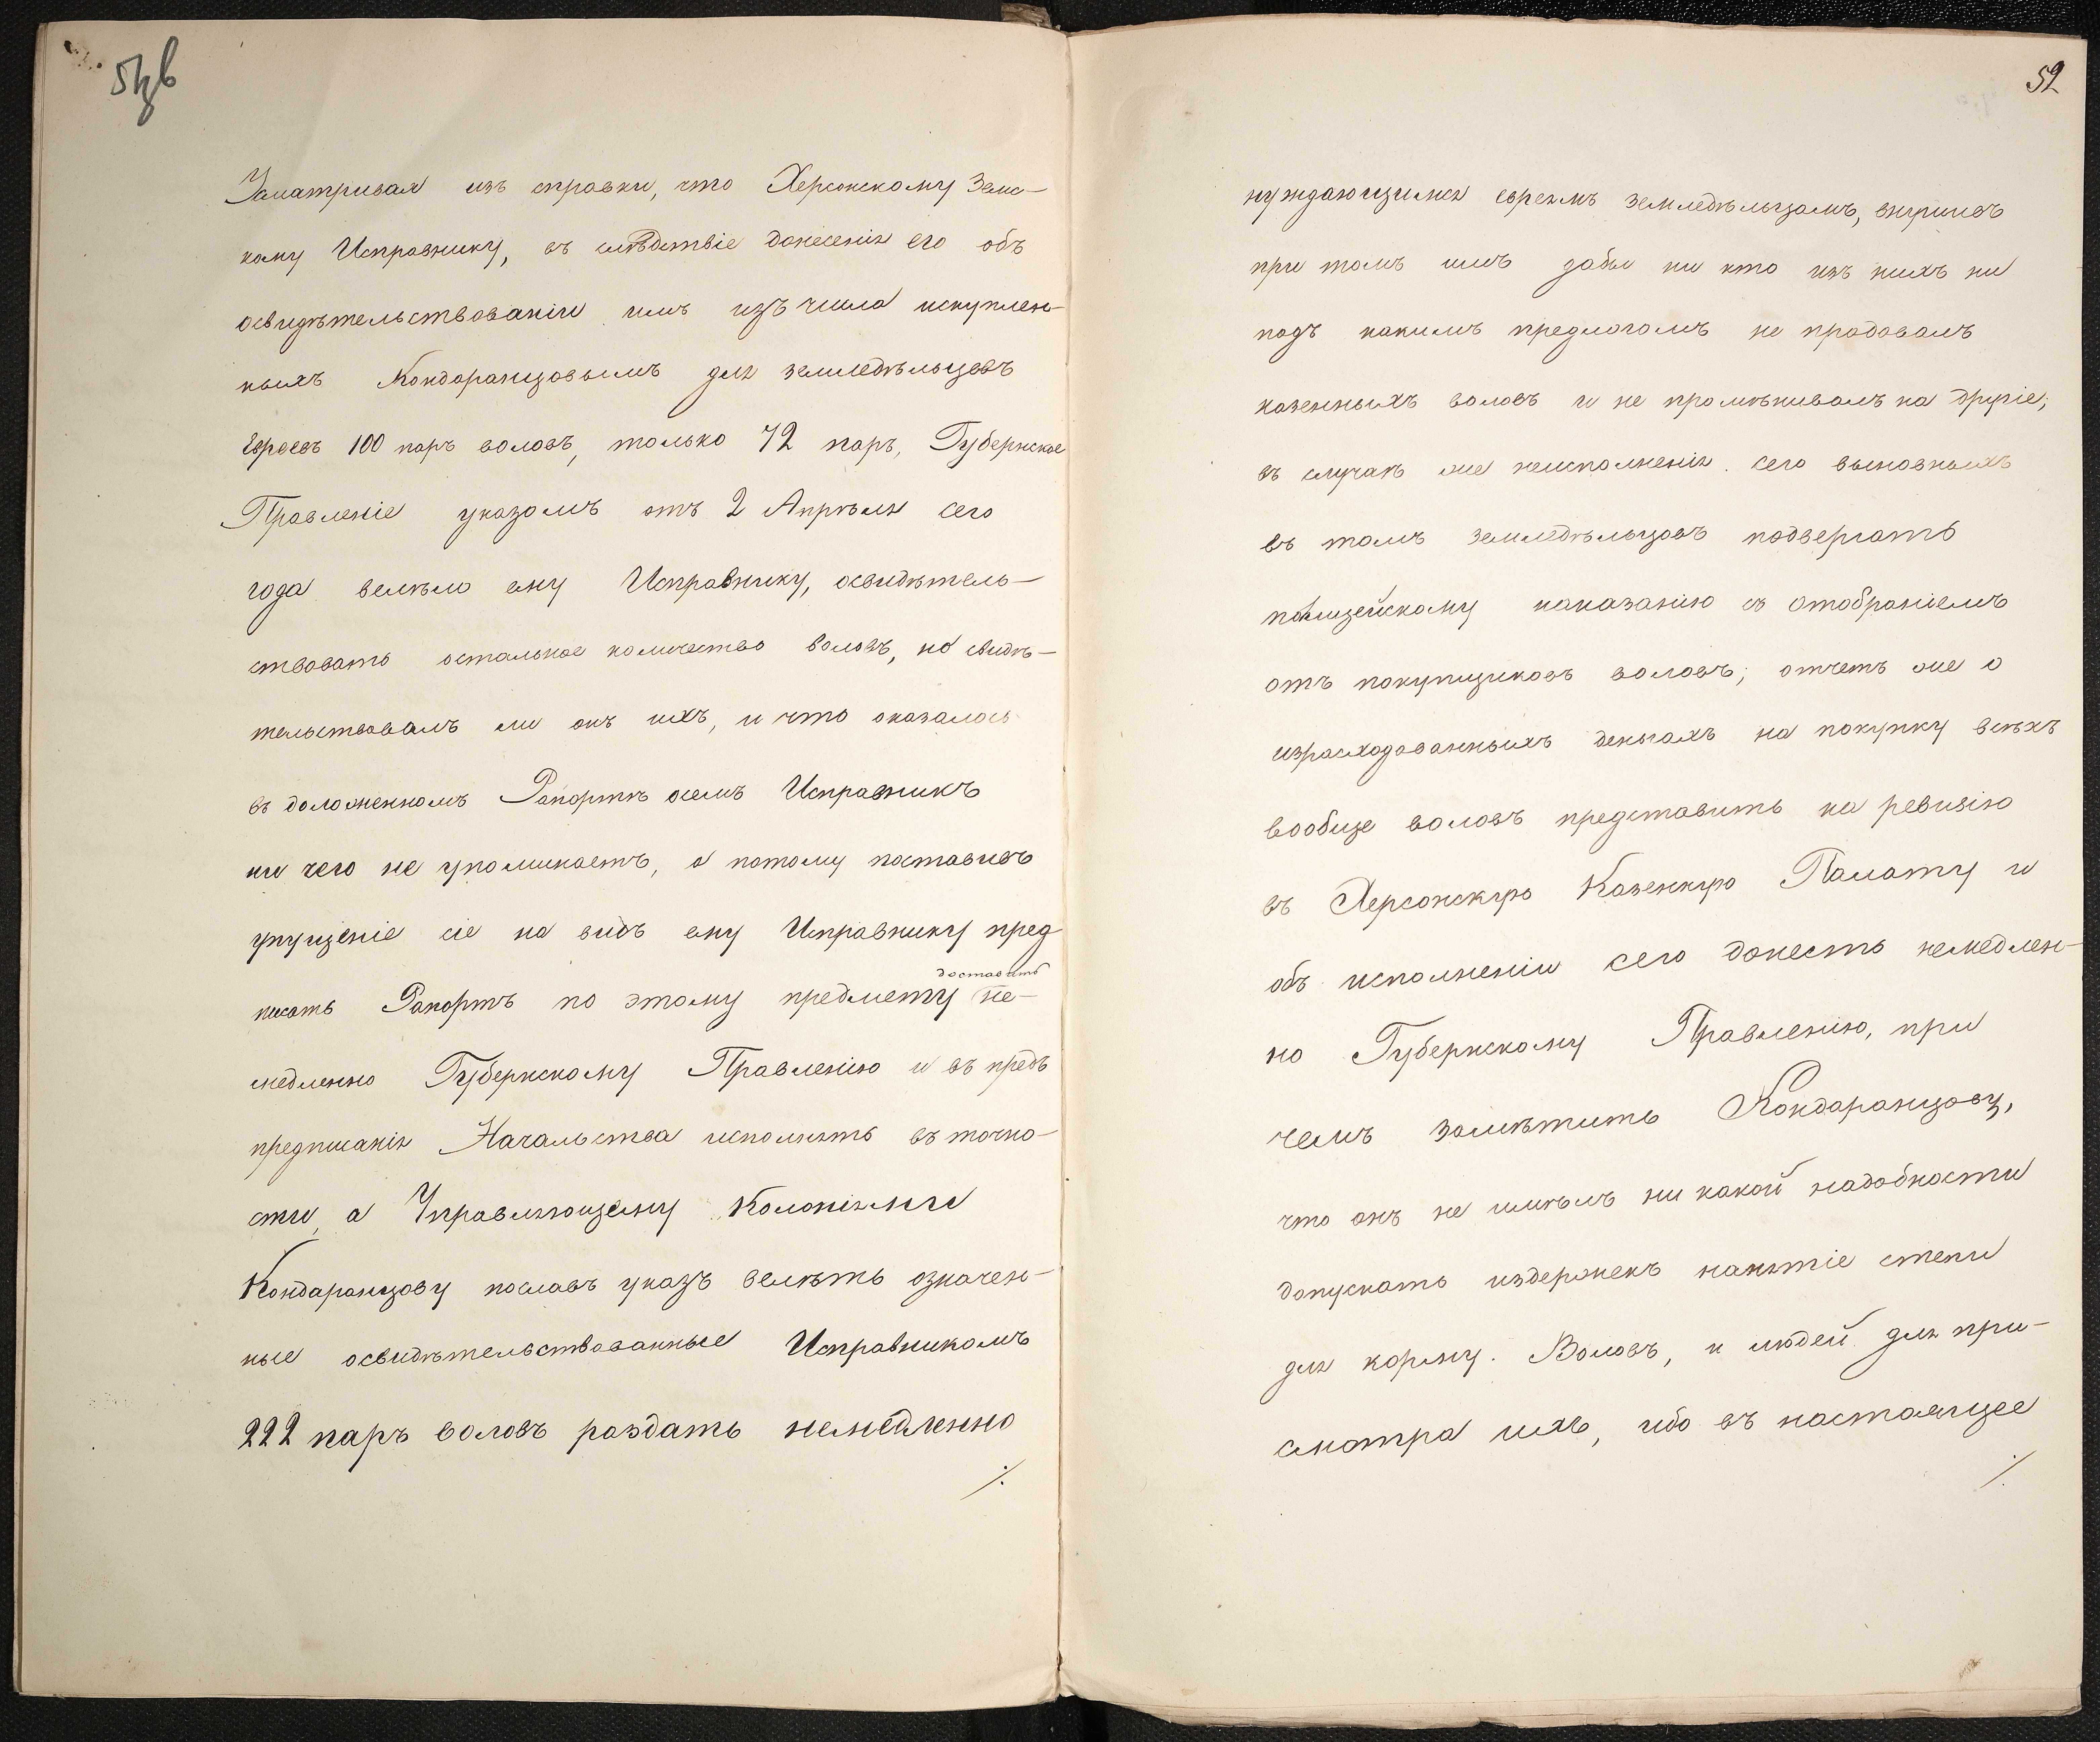 51зв
Усматривая изъ справки, что Херсонскому Земс-
кому Исправнику, въ слѣдствіе донесенія его объ
освидѣтельствованіи имъ изъ числа искуплен-
ныхъ Кондоранцовымъ для земледѣльцевъ
Евреевъ 100 паръ воловъ, только 72 паръ, Губернское
Правленіе указомъ отъ 2 Апрѣля сего
года велѣло ему Исправнику, освидѣтель-
ствовать остальное количество воловъ, но свидѣ-
тельствовалъ ли онъ ихъ, и что оказалось
въ доложенномъ Рапортѣ осемъ Исправникъ
ни чего не упоминаетъ, а потому поставивъ
упущеніе сіе на видъ ему Исправнику пред
доставить
писать Рапортъ по этому предмету не-
медленно Губернскому Правленію и въ предь
предписанія Начальства исполнять въ точно-
сти, а Управляющему Колоніями
Кондаранцову пославъ указъ велѣть означен-
ные освидѣтельствованные Исправникомъ
222 паръ воловъ раздать немедленно
./.
52
нуждающимся евреямъ земледѣльцамъ, внушивъ
при томъ имъ дабы ни кто изъ нихъ ни
подъ какимъ предлогомъ не продовалъ
казенныхъ воловъ и не промѣнивалъ на другіе,
въ случаѣ же неисполненія сего выновныхъ
въ томъ земледѣльцовъ подвергать
полицейскому наказанію съ отобраніемъ
отъ покупщиковъ воловъ; отчетъ же о
израсходованныхъ деньгахъ на покупку всѣхъ
вообще воловъ представить на ревизію
въ Херсонскую Казенную Палату и
объ исполненіи сего донесть немедлен-
но Губернскому Правленію, при
чемъ замѣтить Кондаранцову,
что онъ не имѣлъ ни какой надобности
допускать издержекъ нанятіе степи
для корму. Воловъ, и людей для при-
смотра ихъ, ибо въ настоящее
./.